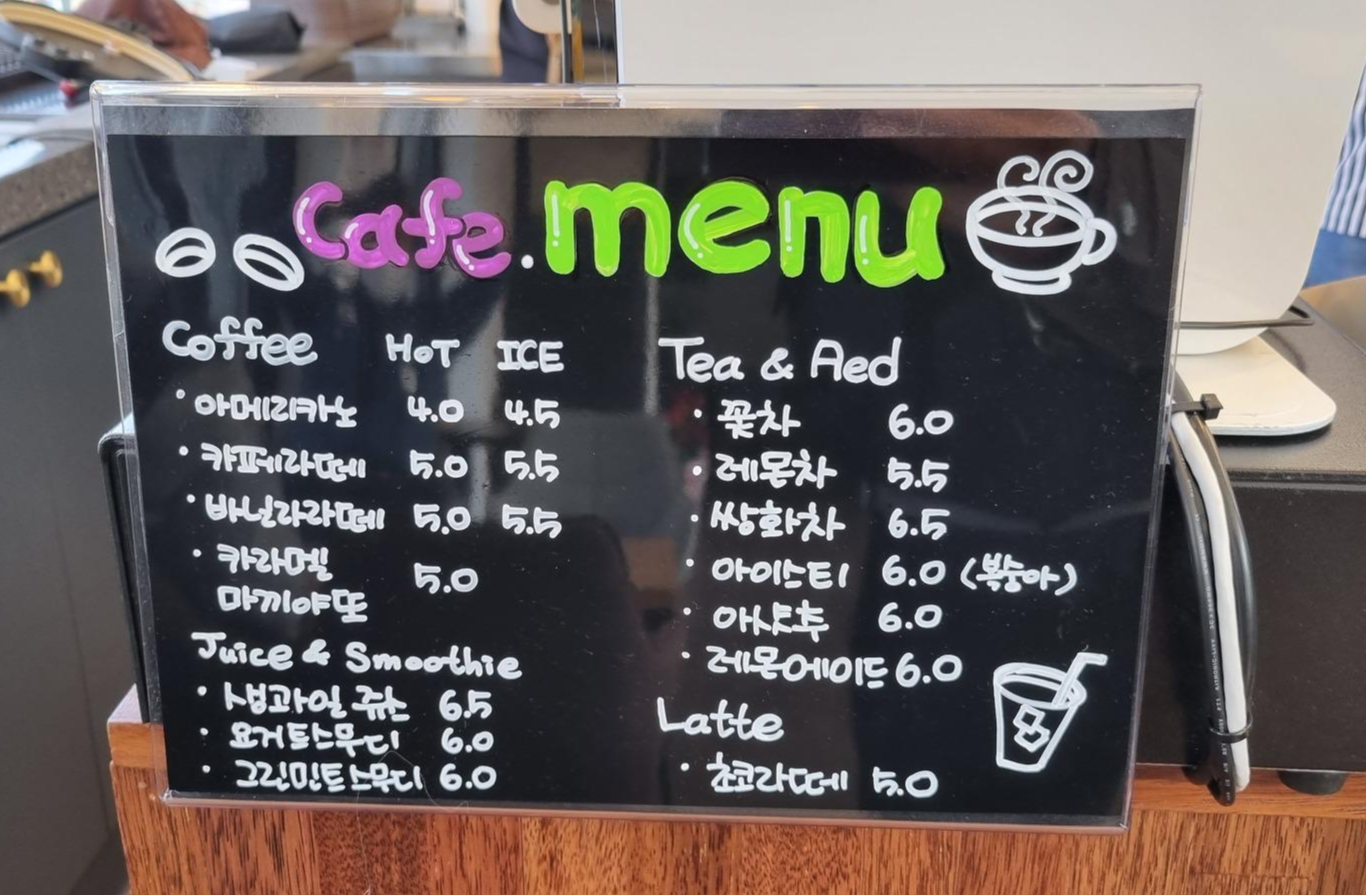 Cafe.menu
Coffee HOT ICE
· 아메리카노 4.0 4.5
· 카페라떼 5.0 5.5
· 바닐라라떼 5.0 5.5
· 카라멜 5.0
마끼야또
Juice & Smoothie
· 생과일 쥬스 6.5
· 요거트스무디 6.0
· 그린민트스무디 6.0
Tea & Aed
· 꽃차 6.0
· 레몬차 5.5
· 쌍화차 6.5
· 아이스티 6.0 (복숭아)
· 아샷추 6.0
· 레몬에이드 6.0
Latte
· 초코라떼 5.0